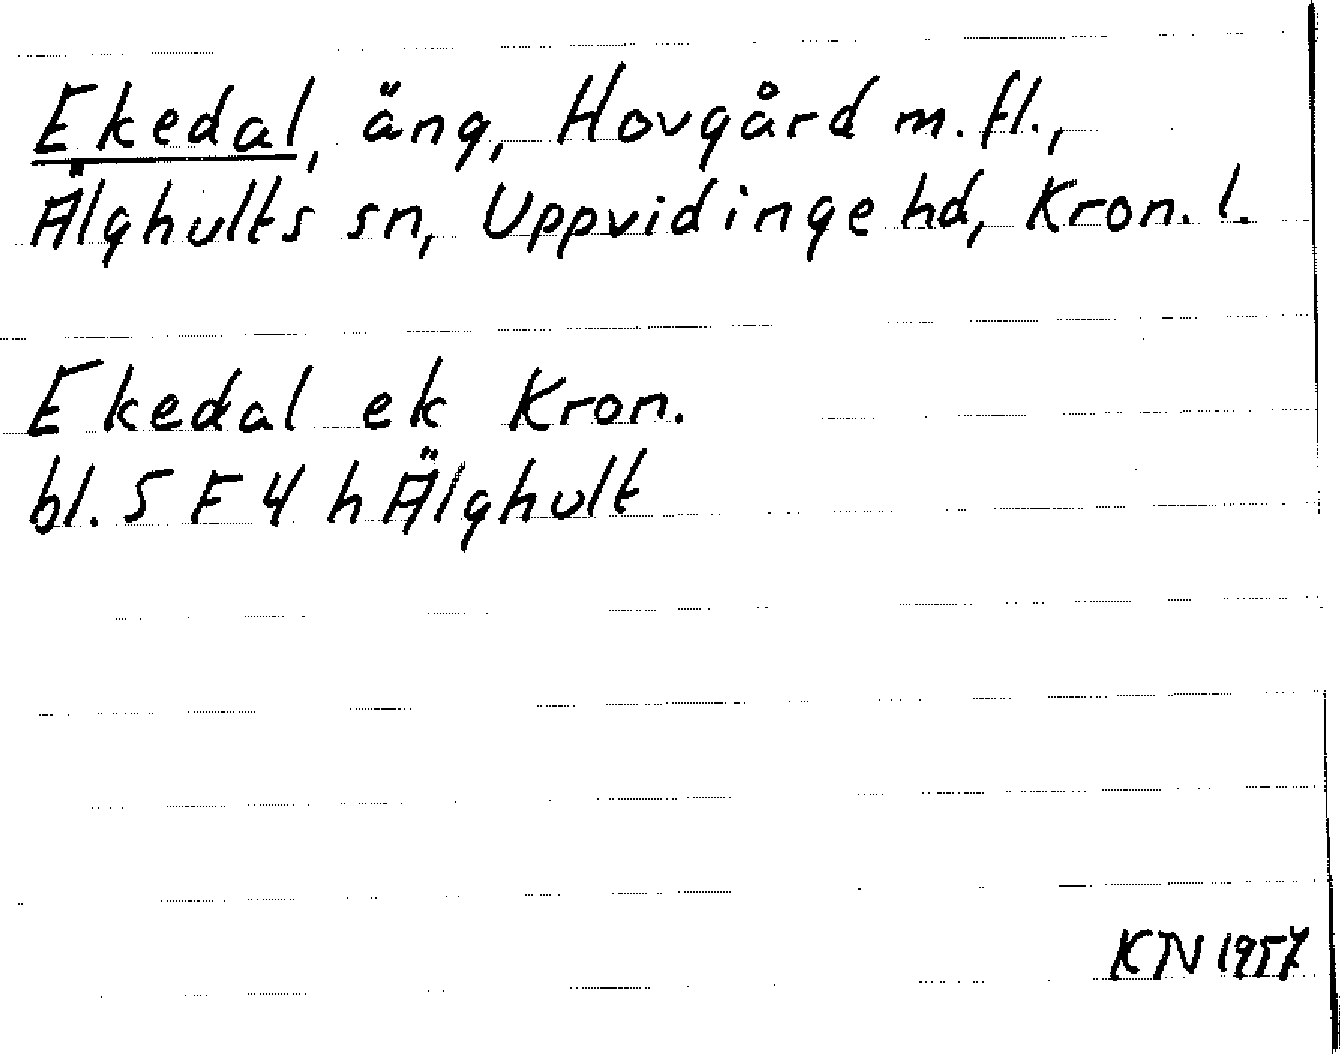 Ekedal, äng, Hovgård m.fl.,
Älghults sn, Uppvidinge hd, Kron. l.
Ekedal ek Kron.
bl. 5 F 4 h Älghult
KTN 1957